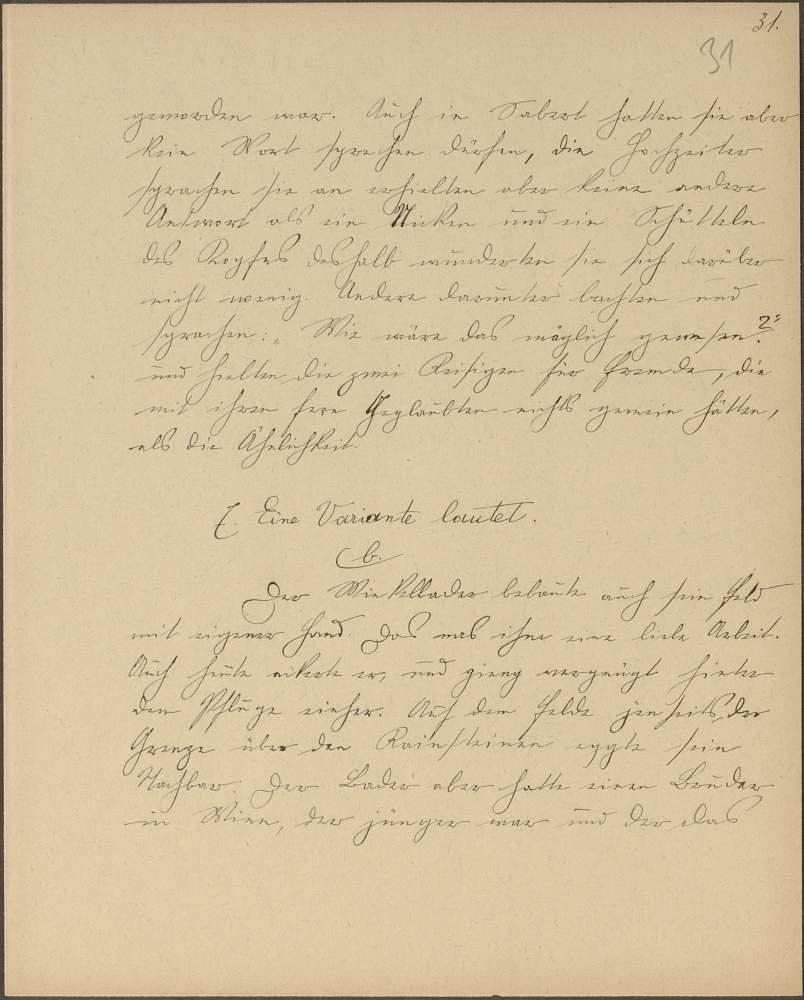 31.
31
geworden war. Auch in Sabert hatten sie aber
kein Wort sprechen dürfen, die Hochzeiter
sprachen sie an erhielten aber keine andere
Antwort als ein Nicken und ein Schütteln
des Kopfes deshalb wunderten sie sich darüber
nicht wenig. Andere darunter lachten und
sprachen: „Wie wäre das möglich gewesen?“
und hielten die zwei Reisigen für Fremde, die
mit ihren fern Geglaubten nichts gemein hätten,
als die Ähnlichkeit.
7. Eine Variante lautet.
b.
Der Winkelbader bebaute auch sein Feld
mit eigener Hand. Das was ihm eine liebe Arbeit.
Auch heute ackerte er, und gieng vergnügt hinter
dem Pfluge einher. Auf dem Felde jenseits der
Grenze über den Rainsteinen eggte sein
Nachbar. Der Bader aber hatte einen Bruder
in Wien, der jünger war und der das